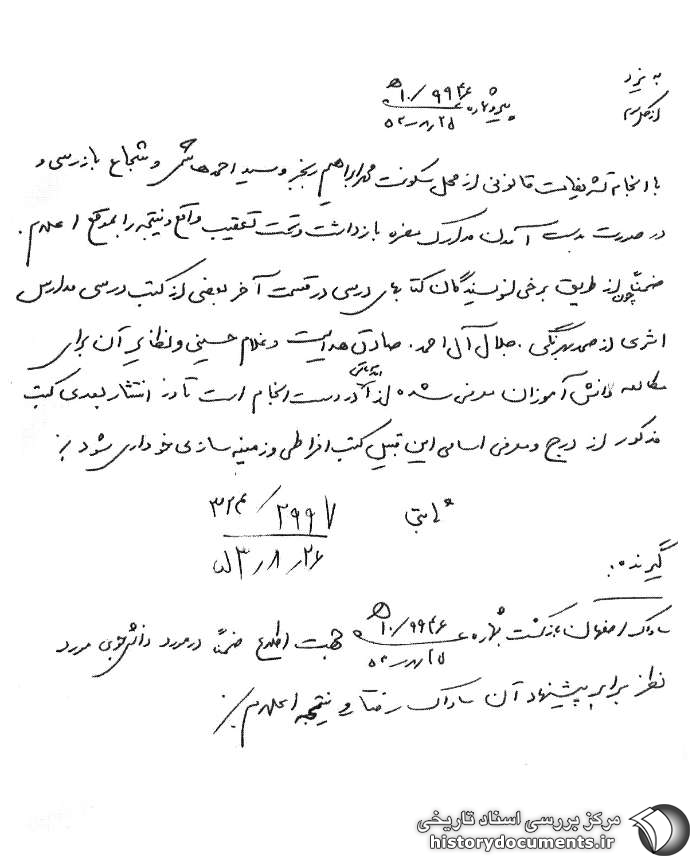 به یزد
از مرکز
پیرو شماره ۹۹۴۶/۱۰ ه
۵۳/۸/۲۵
با انجام تشریفات قانونی از محل سکونت محمدابراهیم رنجبر و سید احمد هاشمی و شجاع بازرسی و
در صورت بدست آمدن مدارک مضره بازداشت و تحت تعقیب واقع و نتیجه را بموقع اعلام.
ضمناً چون از طریق برخی نویسندگان کتابهای درسی در قسمت آخر بعضی از کتب درسی مدارس
اثری از صمد بهرنگی. جلال آل احمد. صادق هدایت و غلام حسینی و نظایر آن برای
مطالعه دانش آموزان معرفی شده از در دست انجام است تا در انتشار بعدی کتب
مذکور از درج و معرفی اسامی این قبیل کتب افراطی و زمینه سازی خودداری شود
ثابتی
۲۹۹۷/۳۲۴
۵۳/۸/۲۶
گیرنده:
ساواک اصفهان بازگشت بشماره ۹۹۴۶/۱۰ ه جهت اطلاع ضمناً در مورد دانشجوی مورد
۵۳/۸/۲۵
نظر برابر پیشنهاد آن ساواک رفتار و نتیجه اعلام
مرکز بررسی اسناد تاریخی
historydocuments.ir